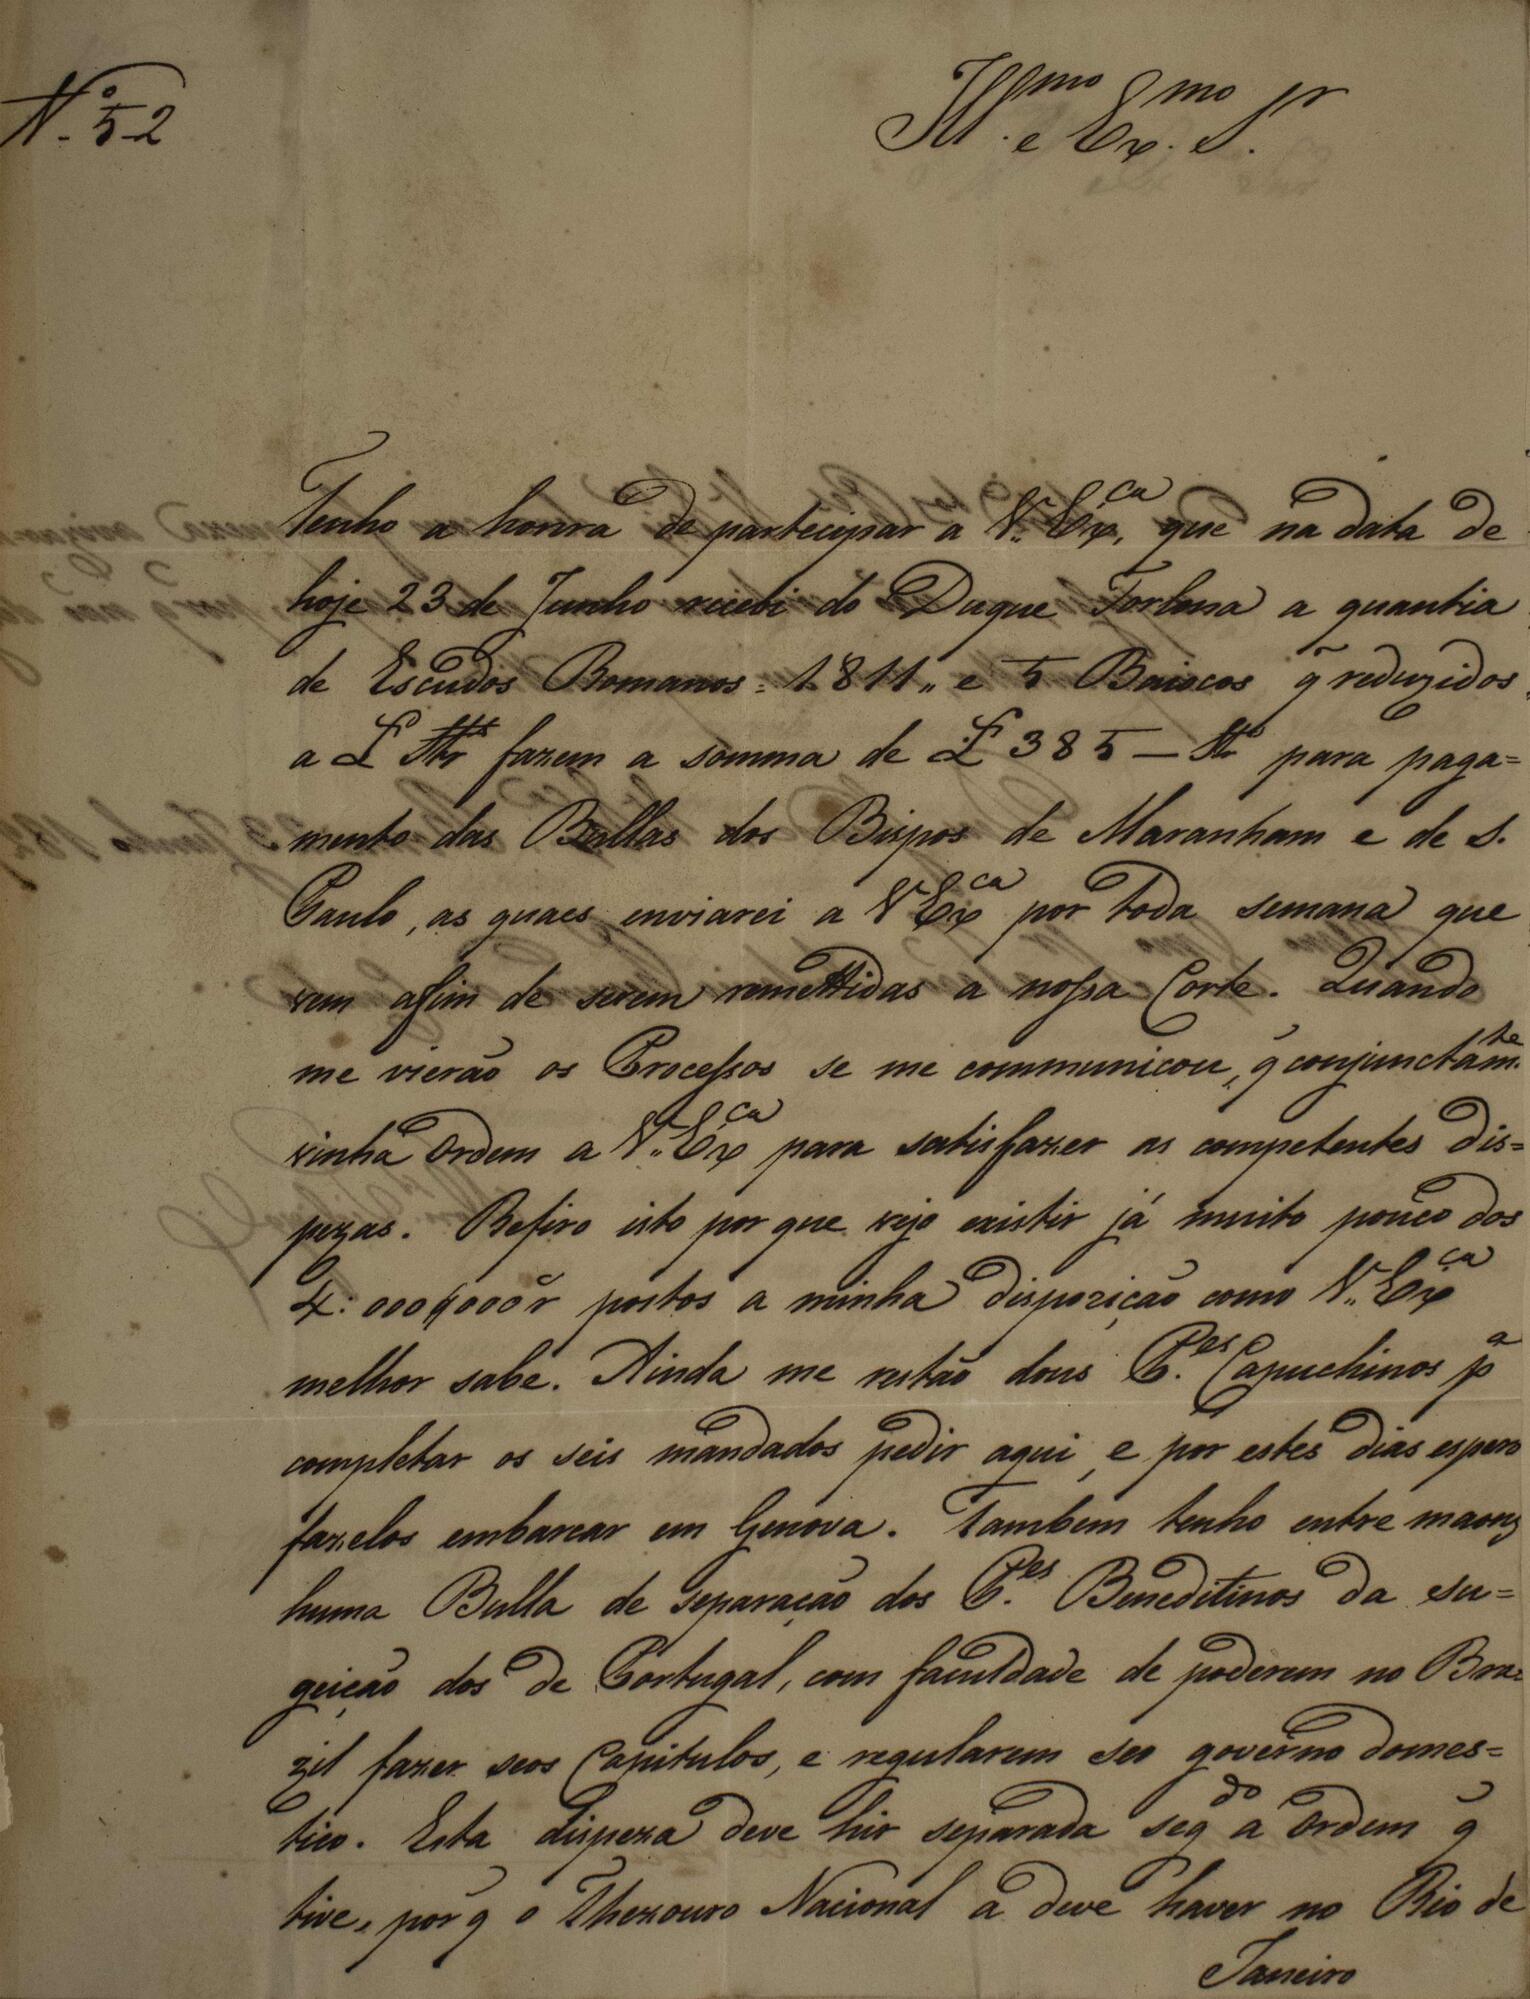 N.º 52
Ill.mo e Ex.mo Sr.
Tenho a honra de partecipar a V.Exca, que na data de
hoje 23 de Junho recebi do Duque Torlona a quantia
de Escudos Romanos = 1811,, e 5 Baiocos q̃ reduzidos
a £ Strs fazem a somma de £ 385 — Strs para paga=
mento das Bullas dos Bispos de Maranham e de S.
Paulo, as quaes enviarei a V.Exca por toda semana que
vem afim de serem remettidas a nossa Corte. Quando
me vierão os Processos se me communicou, q̃ conjunctam.te
vinha ordem a V.Exca para satisfazer as competentes dis=
pezas. Refiro isto por que vejo existir já muito pouco dos
4:000$000 r̃ postos a minha dispozição como V.Exca
melhor sabe. Ainda me restão dous P.es Capuchinos pa
completar os seis mandados pedir aqui, e por estes dias espero
fazelos embarcar em Genova. Tambem tenho entre maons
huma Bulla de separação dos P.es Beneditinos da su=
geição dos de Portugal, com faculdade de poderem no Bra=
zil fazer seos Capitulos, e regularem seo governo domes=
tico. Esta dispeza deve hir separada segdo a ordem q̃
tive, por q̃ o Thezouro Nacional a deve haver no Rio de
Janeiro